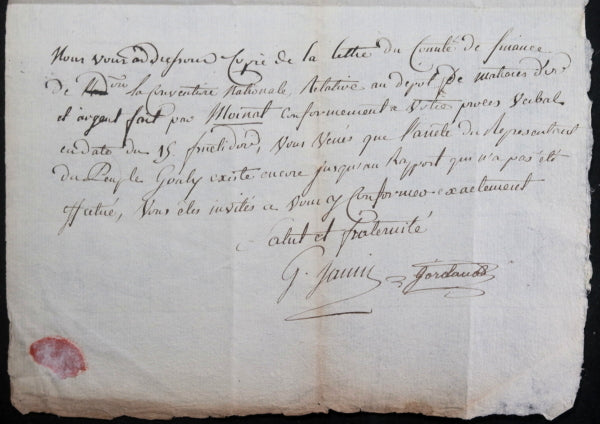 Nous vous adressons Copie de la lettre du Comité de finance
de la Convention Nationale, Relative au depot de matieres d'or
et argent fait par Moinat Conformement a Votre procès Verbal
en date du 15 fructidor, Vous Verés que l'arrêté du Representant
du Peuple Gouly existe encore jusqu'au Rapport qui n'a pas été
effectué, Vous êtes invités a vous y Conformer exactement
Salut et fraternité
G.